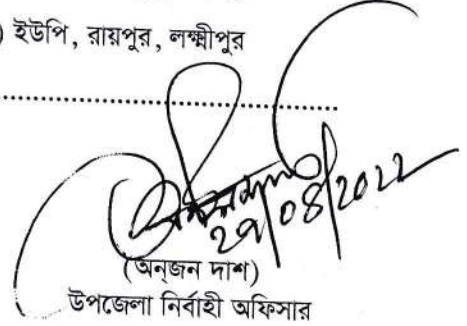 ) ইউপি, রায়পুর, লক্ষ্মীপুর
............................................................
২৭/০৪/2022
(অন্‌জন দাশ)
উপজেলা নির্বাহী অফিসার